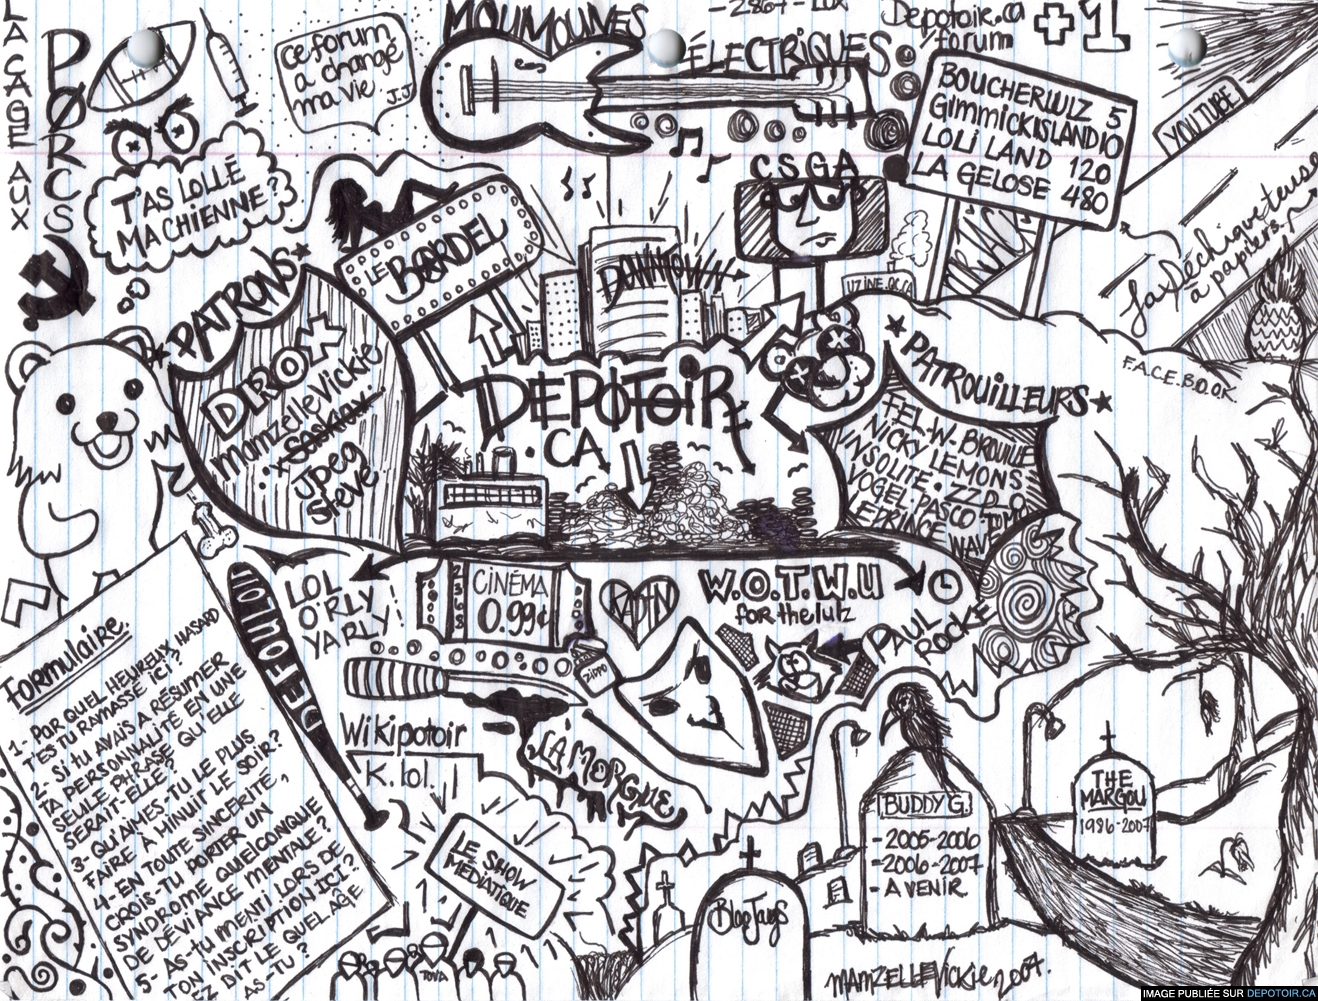 LA CAGE AUX
PORCS
ce forum
a changé
ma vie.
J.J
MOUMOUNES
ÉLECTRIQUES
-2867-LUX
Depotoir.ca
forum
+1
BOUCHERLULZ 5
GimmickISLAND 10
LOLI LAND 120
LA GELOSE 480
YOUTUBE
La Déchiqueteuse
à papiers.
T'AS LOLLÉ
MA CHIENNE?
C.S.G.A
LE BORDEL
DOWNTOWN
UZINE.QC.CA
PATRONS
DIROX
mamzelleVickie
Jpeg
Steve
DEPOTOIR
.CA
PATROUILLEURS
TEL.W.BROUILLE
NICKY LEMONS
INSOLITE. ZZDLO
VOGEL.PASCO.TOM
LEPRINCE WAV
F.A.C.E.B.O.O.K
LOL
O'RLY
YARLY!
CINÉMA
0.99¢
W.O.T.W.U
for the lulz
PAUL
ROCKE
DEFOULOI
zippo
Wikipotoir
K.lol.
LA MORGUE
Formulaire.
1- PAR QUEL HEUREUX HASARD
T'ES TU RAMASSÉ ICI?
2- SI TU AVAIS A RÉSUMER
TA PERSONNALITÉ EN UNE
SEULE PHRASE QU'ELLE
SERAIT-ELLE?
3- QU'AIMES-TU LE PLUS
FAIRE À MINUIT LE SOIR?
4- EN TOUTE SINCÉRITÉ,
CROIS-TU PORTER UN
SYNDROME QUELCONQUE
DE DÉVIANCE MENTALE?
5- AS-TU MENTI LORS DE
TON INSCRIPTION ICI?
EZ DIT LE QUEL AGE
AS-TU?
LE SHOW
MÉDIATIQUE
TOVA
BlogJays
BUDDY G.
-2005-2006
-2006-2007
-A VENIR
THE
MARGOU
1986-2007
MAMZELLEVICKIE 2007.
IMAGE PUBLIÉE SUR DEPOTOIR.CA